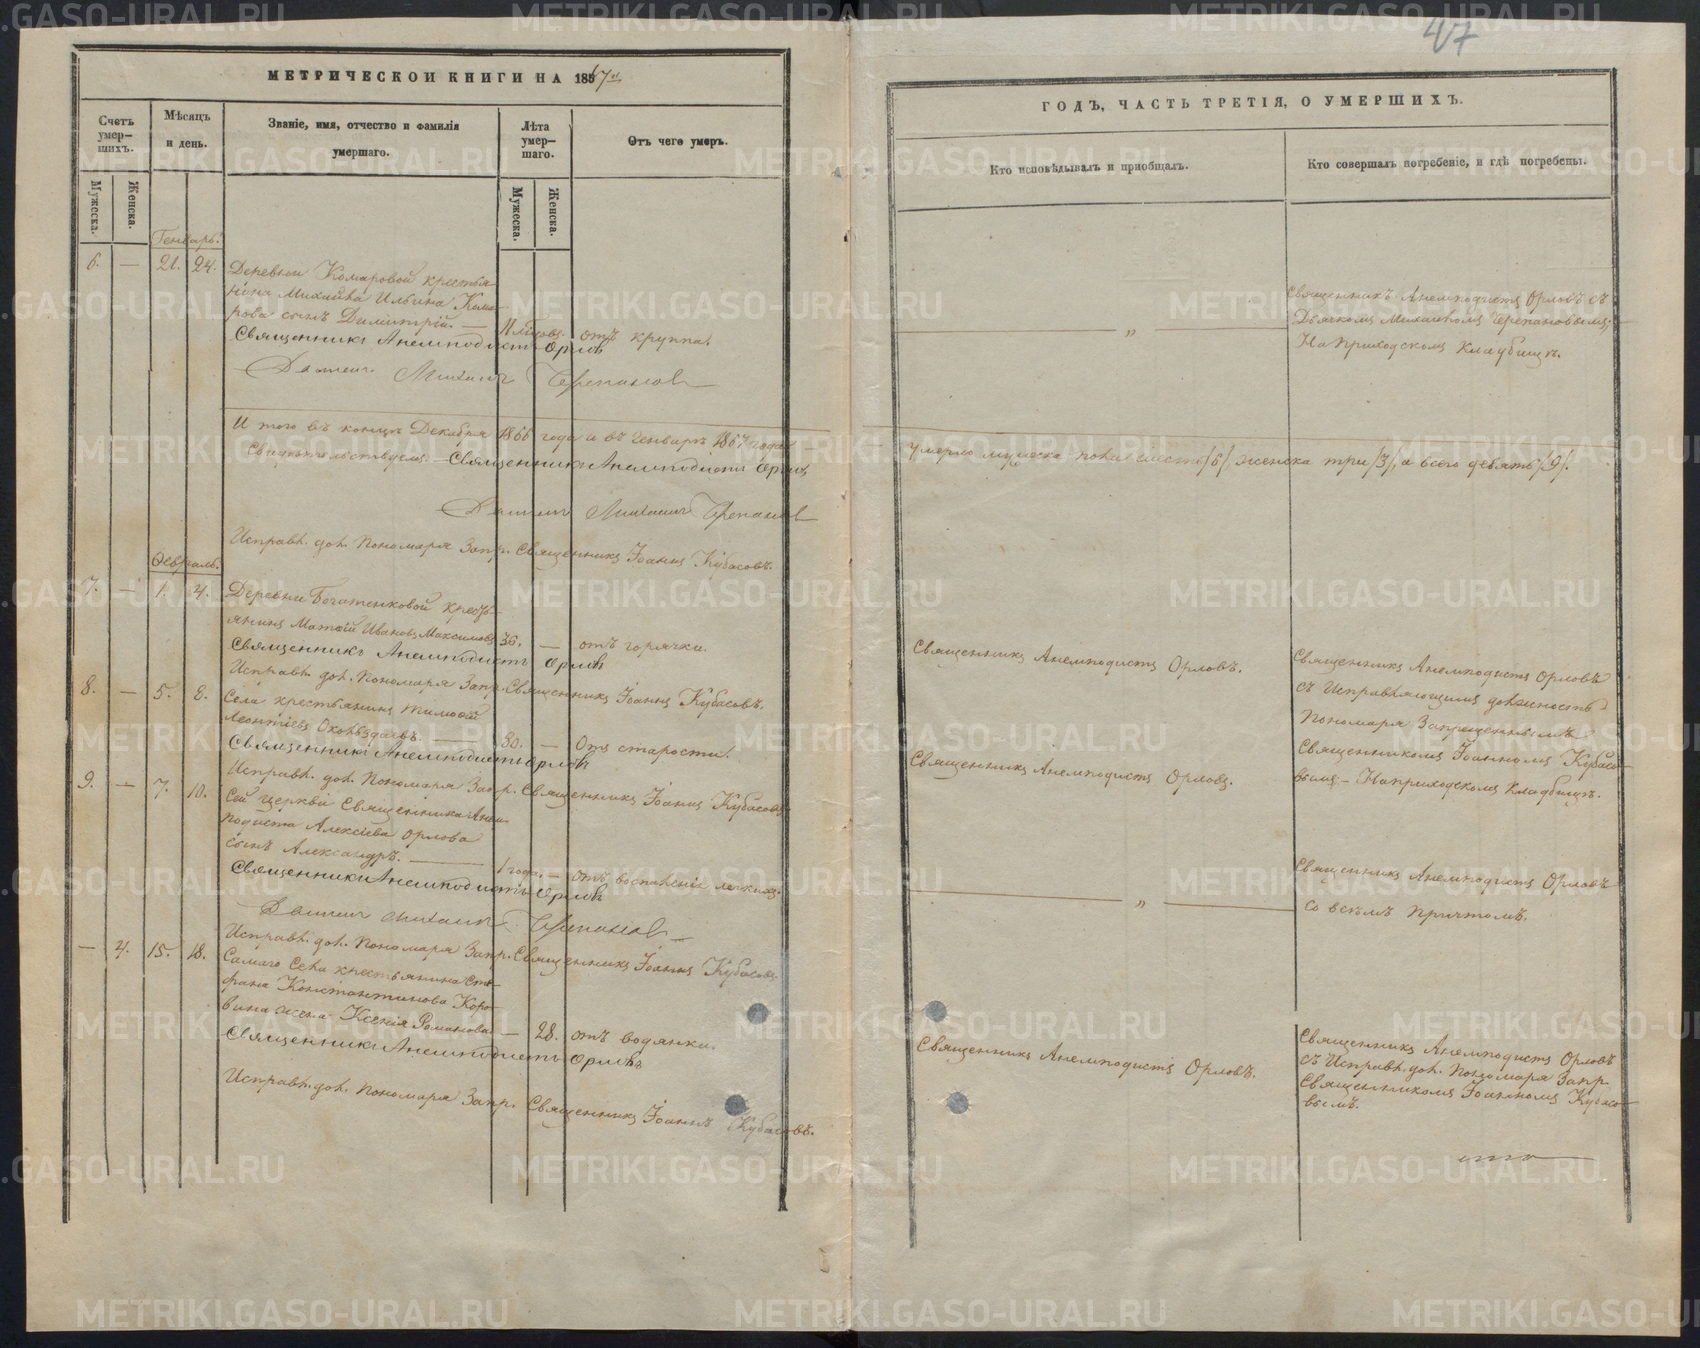 47
МЕТРИЧЕСКОЙ КНИГИ НА 1867й
Счетъ умер-шихъ.
Мѣсяцъ и день.
Званіе, имя, отчество и фамилія умершаго.
Лѣта умер-шаго.
Отъ чего умеръ.
Мужеска.
Женска.
Мужеска.
Женска.
Генварь.
6. — 21. 24. Деревни Комаровой крестья-
нина Михаила Ильина Кома-
рова сынъ Димитрій. — от крупа.
Священникъ Анемподистъ Орловъ
Дьячекъ Михаилъ Черепановъ
И того въ концѣ Декабря 1866 года и въ Генварѣ 1867 года
Свидѣтельствуемъ. Священникъ Анемподистъ Орловъ
Дьячекъ Михаилъ Черепановъ
Исправл. дол. Пономаря Запр. Священникъ Іоаннъ Кубасовъ.
Февраль.
7. — 1. 4. Деревни Богатенковой кресть-
янинъ Матѳій Ивановъ Максимовъ 36. — отъ горячки.
Священникъ Анемподистъ Орловъ
Исправл. дол. Пономаря Запр. Священникъ Іоаннъ Кубасовъ.
8. — 5. 8. Села крестьянинъ Тимоѳей
Леонтіевъ — 80. — Отъ старости.
Священникъ Анемподистъ Орловъ
Исправл. дол. Пономаря Запр. Священникъ Іоаннъ Кубасовъ
9. — 7. 10. Сей церкви Священника Анем-
подиста Алексіева Орлова
сынъ Александръ. — 1 года. — отъ воспаленія легкихъ.
Священникъ Анемподистъ Орловъ
Дьячекъ Михаилъ Черепановъ
Исправл. дол. Пономаря Запр. Священникъ Іоаннъ Кубасовъ
— 4. 15. 18. Самаго Села крестьянина Сте-
фана Константинова Коро-
вина жена Ксенія Романова — 28. отъ водянки.
Священникъ Анемподистъ Орловъ
Исправл. дол. Пономаря Запр. Священникъ Іоаннъ Кубасовъ.
ГОДЪ, ЧАСТЬ ТРЕТІЯ, О УМЕРШИХЪ.
Кто исповѣдывалъ и пріобщалъ.
Кто совершалъ погребеніе, и гдѣ погребены.
— „ —
Священникъ Анемподистъ Орловъ съ
Дьячкомъ Михаиломъ Черепановымъ;
На приходскомъ кладбищѣ.
умерло мужеска пола шесть /6/, женска три /3/, а всего девять /9/.
Священникъ Анемподистъ Орловъ.
Священникъ Анемподистъ Орловъ
съ Исправляющимъ должность
Пономаря Запрещеннымъ
Священникомъ Іоанномъ Кубасо-
вымъ. На приходскомъ кладбищѣ.
Священникъ Анемподистъ Орловъ.
— „ —
Священникъ Анемподистъ Орловъ
со всѣмъ причтомъ.
Священникъ Анемподистъ Орловъ.
Священникъ Анемподистъ Орловъ
съ Исправл. дол. Пономаря Запр.
Священникомъ Іоанномъ Кубасо-
вымъ.
METRIKI.GASO-URAL.RU